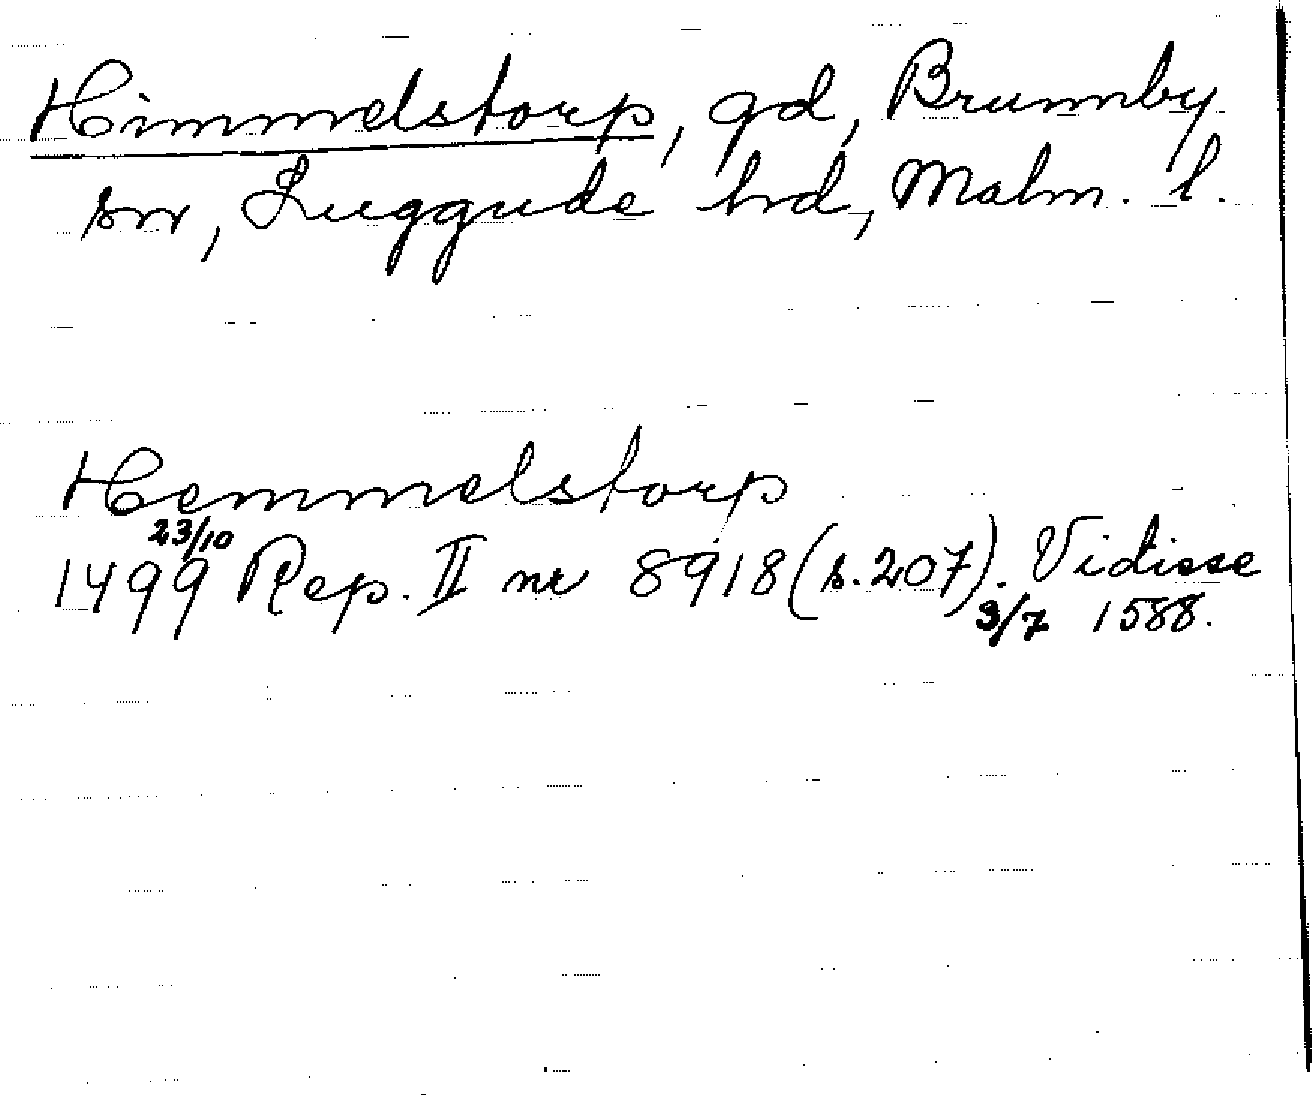 Himmelstorp, gd, Brunnby
sn, Luggude hd, Malm. l.
Hemmelstorp
23/10
1499 Rep. II nr 8918 (s. 207). Vidisse
3/7 1588.